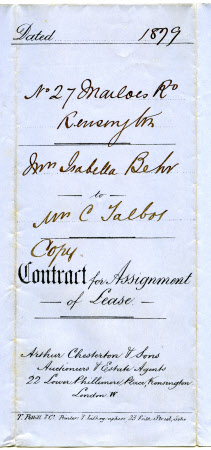 Dated 1879
No 27 Marloes Rd
Kensington
Mrs Isabella Behr
to
Mr C Talbot
Copy
Contract for Assignment
of Lease
Arthur Chesterton & Sons
Auctioneers & Estate Agents
22 Lower Phillimore Place, Kensington
London W
& Co. Printers & Lithographers 23